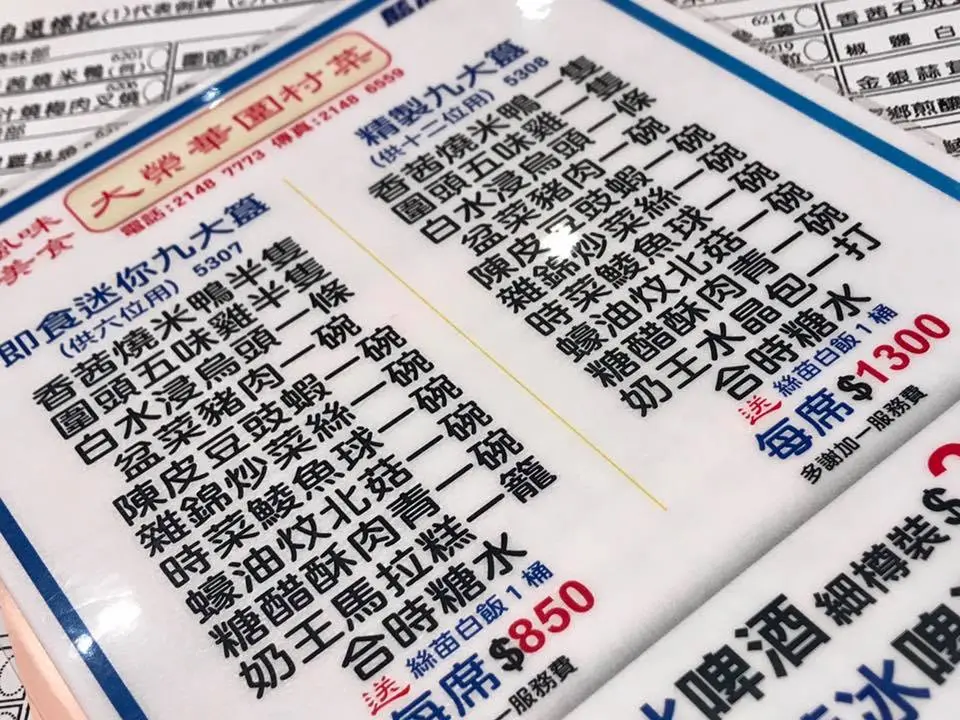 自選標記(1)代表例牌
6201
6206
6214
6219
香茜石斑
椒鹽白
金銀蒜
大榮華圍村菜
電話:2148 7773 傳真:2148 6559
風味
美食
即食迷你九大簋
(供六位用) 5307
香茜燒米鴨半隻
圍頭五味雞半隻
白水浸烏頭一條
盆菜豬肉一碗
陳皮豆豉蝦一碗
雜錦炒菜絲一碗
時菜鯪魚球一碗
蠔油炆北菇一碗
糖醋酥肉青一碗
奶王馬拉糕一籠
合時糖水
送 絲苗白飯1桶
每席 $850
一服務費
精製九大簋
(供十二位用) 5308
香茜燒米鴨一隻
圍頭五味雞一隻
白水浸烏頭一條
盆菜豬肉一碗
陳皮豆豉蝦一碗
雜錦炒菜絲一碗
時菜鯪魚球一碗
蠔油炆北菇一碗
糖醋酥肉青一碗
奶王水晶包一打
合時糖水
送 絲苗白飯1桶
每席 $1300
多謝加一服務費
啤酒 細樽裝 $
冰啤